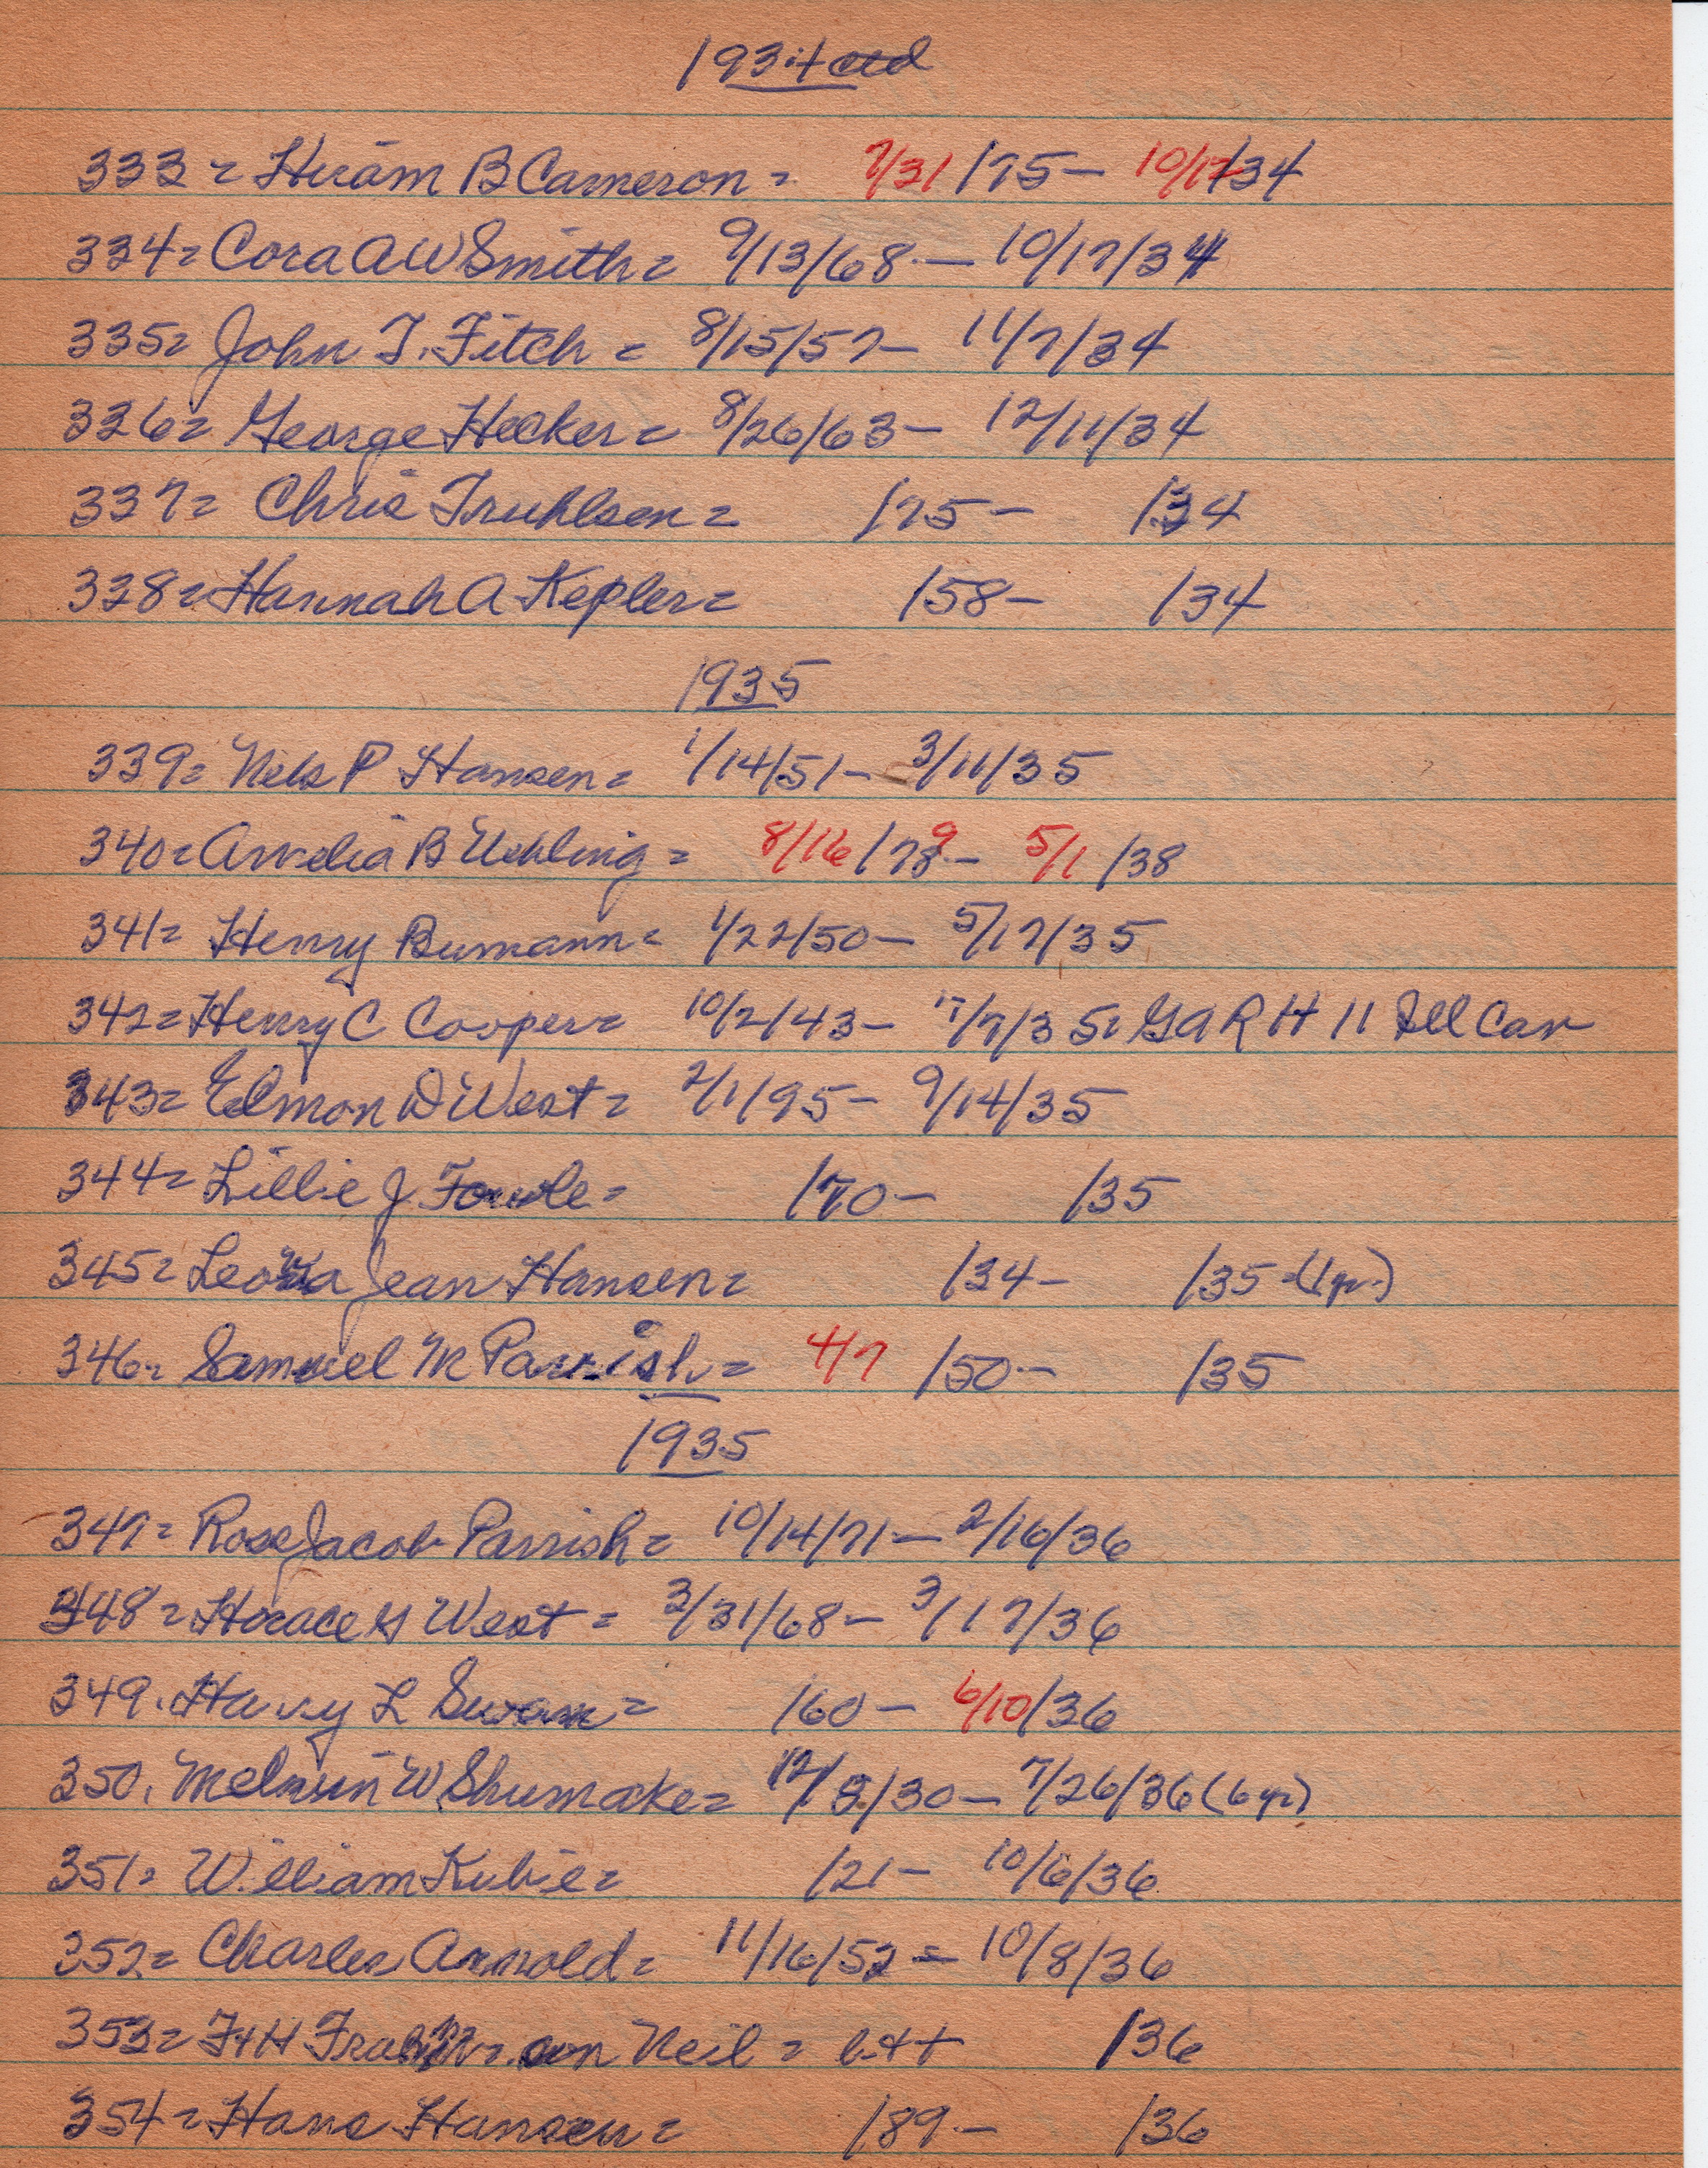 1934 ctd
333 = Hiram B Cameron = 7/31/75 — 10/17/34
334 = Cora A W Smith = 9/13/68 — 10/17/34
335 = John T. Fitch = 8/15/57 — 11/7/34
336 = George Hecker = 8/26/63 — 12/11/34
337 = Chris Truhlsen = /75 — /34
338 = Hannah A Kepler = /58 — /34
1935
339 = Nels P Hansen = 1/14/51 — 3/11/35
340 = Amelia B Uehling = 8/16/78 9 — 5/1/38
341 = Henry Bumann = 1/22/50 — 5/17/35
342 = Henry C Cooper = 10/2/43 — /7/35 = GAR H 11 Ill Cav
343 = Elmon D West = 2/1/95 — 9/14/35
344 = Lillie J. Fowle = /70 — /35
345 = Leona Jean Hansen = /34 — /35 = (1 yr.)
346 = Samuel M Parrish = 4/7 /50 — /35
1935
347 = Rose Jacob Parrish = 10/14/71 — 2/16/36
348 = Horace G West = 3/31/68 — 3/17/36
349. Harvy L Swan = /60 — 6/10/36
350. Melvin W Shumake = 12/5/30 — 7/26/36 (6 yr)
351 = William Kubie = /21 — 10/6/36
352 = Charles Arnold = 11/16/52 = 10/8/36
353 = F H son Neil = /36
354 = Hans Hansen = /89 — /36